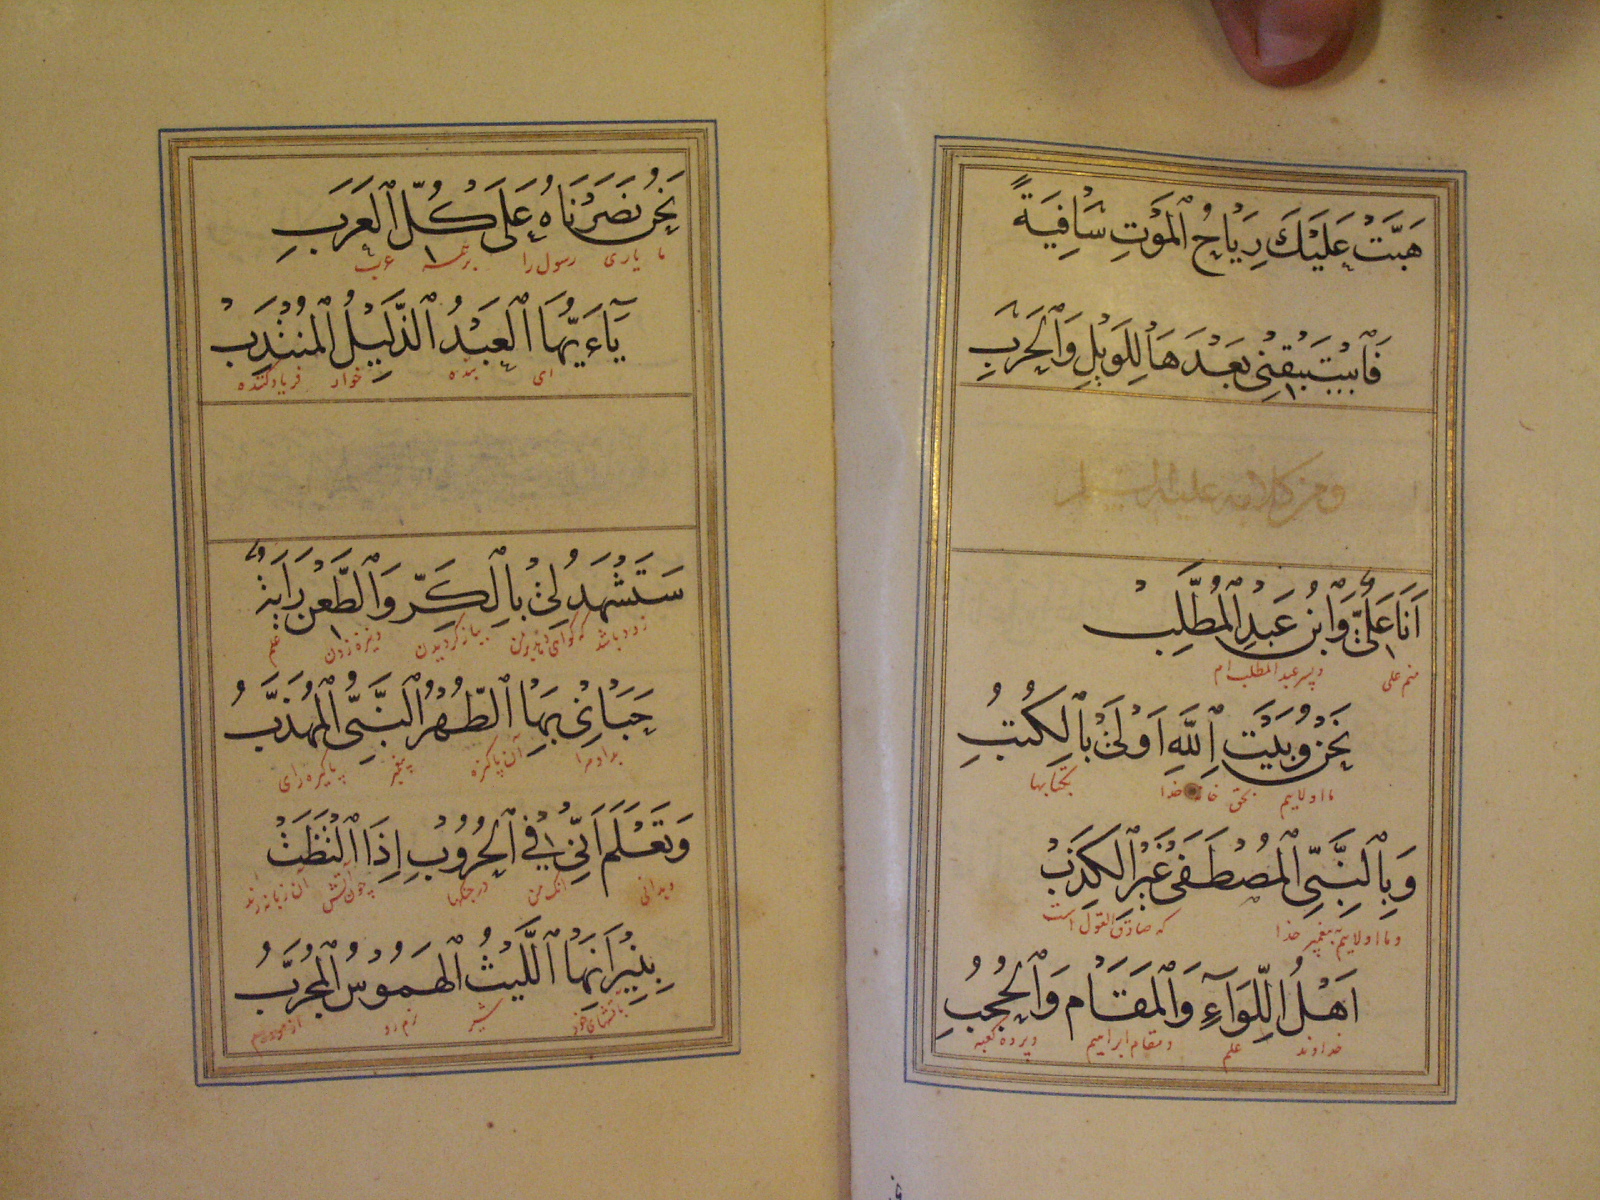 هَبَّتْ عَلَيْكَ رِيَاحُ الْمَوْتِ سَافِيَةً
فَاسْتَبْقِنِي بَعْدَهَا لِلْوَيْلِ وَالْحَرَبِ
ومن كلامه عليه السلام
اَنَا عَلِيٌّ وَابْنُ عَبْدِ الْمُطَّلِبْ
منم علی وپسر عبد المطلب ام
نَحْنُ وَبَيْتِ اللَّهِ اَوْلَى بِالْكُتُبِ
ما اولاییم بحق خانه خدا بکتابها
وَبِالنَّبِيِّ الْمُصْطَفَى غَيْرِ الْكَذِبْ
وما اولاییم به پیغمبر خدا که صادق القول است
اَهْلُ اللِّوَآءِ وَالْمَقَامِ وَالْحُجُبِ
خداوند علم ومقام ابراهیم وپرده کعبه
نَحْنُ نَصَرْنَاهُ عَلَى كُلِّ الْعَرَبِ
ما یاری رسول را برهمه عرب
يَآءَيُّهَا الْعَبْدُ الذَّلِيلُ الْمُنْتَدِبْ
ای بنده خوار فریادکننده
سَتَشْهَدُ لِي بِالْكَرِّ وَالطَّعْنِ رَايَةٌ
زود باشد که گواهی بباز گردیدن ونیزه زدن علم
حَبَانِي بِهَا الطُّهْرُ النَّبِيُّ الْمُهَذَّبُ
آن پاکیزه پیغمبر پاکیزه رای
وَتَعْلَمُ اَنِّي فِي الْحُرُوبِ اِذَا الْتَظَتْ
وبدانی انک من در جنگها چون آتش آن زبانه زند
بِنِيرَانِهَا اللَّيْثُ الْهَمُوسُ الْمُجَرَّبُ
شیر نرم رو